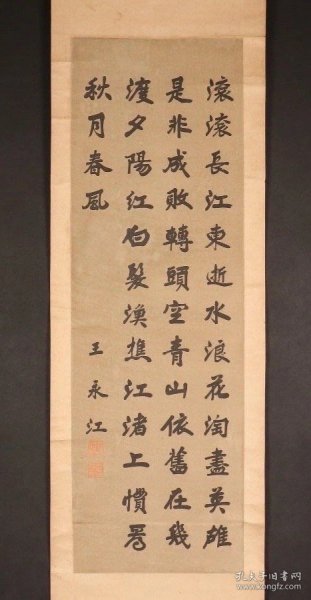 滚滚長江東逝水浪花淘盡英雄
是非成敗轉頭空青山依舊在幾
渡夕陽紅白髮漁樵江渚上慣看
秋月春風
王永江
孔夫子旧书网
www.kongfz.com